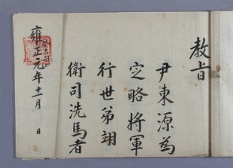 敎旨
尹東源爲
定略將軍
行世弟翊
衛司洗馬者
雍正元年十一月 日